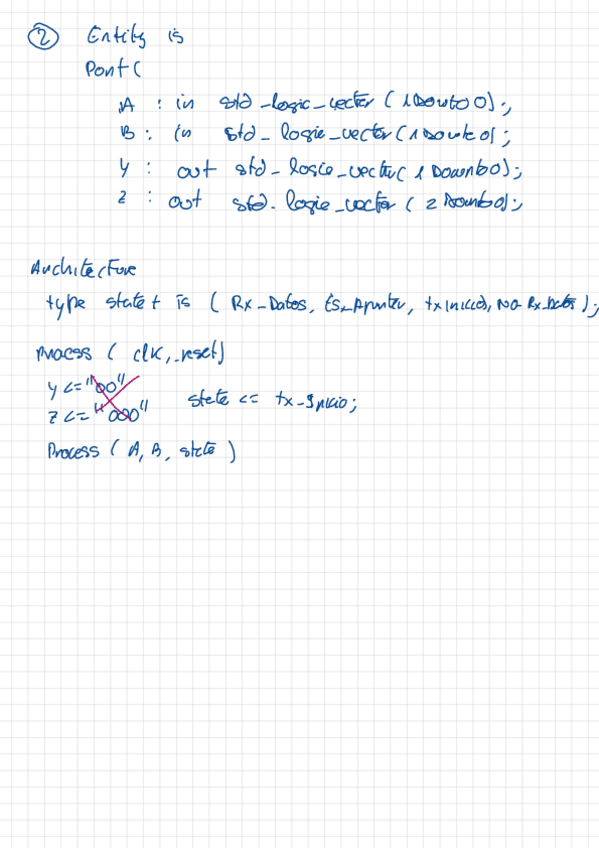 2 Entity is
Port (
A : in std_logic_vector (1 Downto 0);
B : in std_logic_vector (1 Downto 0);
Y : out std_logic_vector (1 Downto 0);
Z : out std_logic_vector (2 Downto 0);
Architecture
type state t is ( Rx_Datos, Es_Apuntar, tx inicio, No Rx_Datos );
Process ( clk, reset)
Y <= "00"
Z <= "000" state <= tx_Inicio;
Process ( A, B, state )